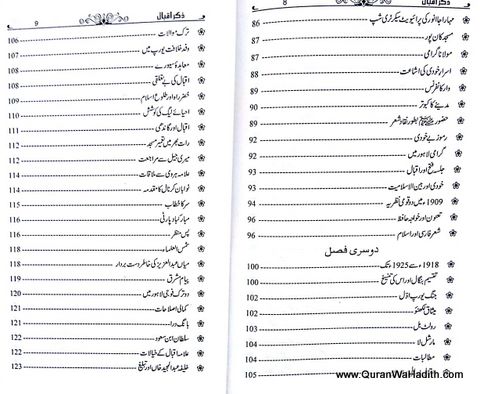 ذکر اقبال 8
مہاراجا الور کی پرائیویٹ سیکرٹری شپ 86
مسجد کان پور 87
مولانا گرامی 87
اسرار خودی کی اشاعت 88
وار کانفرنس 88
مدینے کا کبوتر 88
حضور ﷺ بطور نقاد شعر 89
رموز بے خودی 92
گرامی لاہور میں 92
جلسہ فتح اور اقبال 93
خودی اور بین الاسلامیت 93
1909 میں دو قومی نظریہ 94
تصوف اور خواجہ حافظ 96
شعر فارسی اور اسلام 96
دوسری فصل
1918ء سے 1925ء تک 100
تقسیم بنگال اور اس کی تنسیخ 100
جنگ یورپ اوّل 102
میثاق لکھنؤ 102
رولٹ بل 103
مارشل لا 104
مطالبات 104
105
www.QuranWaHadith.com
9 ذکر اقبال
ترک موالات 106
وفد خلافت یورپ میں 107
معاہدۂ سیورے 108
اقبال کی بے تعلقی 108
خضر راہ اور طلوع اسلام 109
احیائے لیگ کی کوشش 110
اقبال اور گاندھی 111
رات بھر میں تعمیر مسجد 111
میری جیل سے مراجعت 112
علامہ ہروی سے ملاقات 114
نواباں کرنال کا مقدمہ 114
سر کا خطاب 115
مبارکباد پارٹی 116
پس منظر 116
شمس العلماء 118
میاں عبدالعزیز کی خاطر دست بردار 118
پیام مشرق 119
دو ترک فوجی لاہور میں 120
کمالی اصلاحات 121
بانگ درا 121
سلطان ابن سعود 122
علامہ اقبال کے خیالات 122
خلیفہ عبدالمجید خاں اور تبلیغ 123